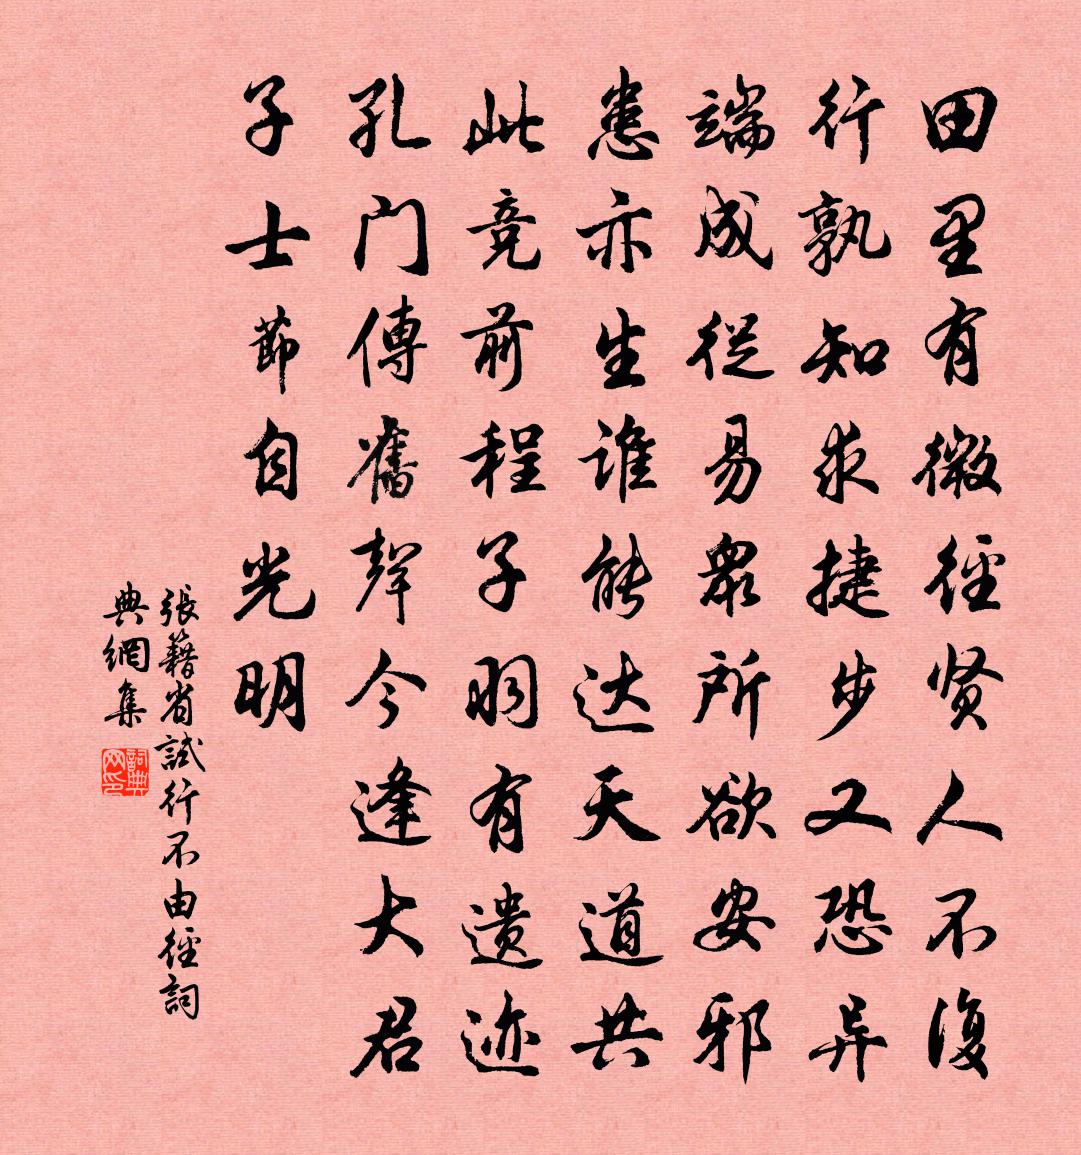 田里有微徑贤人不復
行孰知求捷步又恐异
端成從易眾所欲安邪
患亦生誰能达天道共
此竞前程子羽有遗迹
孔门傳舊聲今逢大君
子士節自光明
張籍省試行不由徑詞
典網集
詞典网印